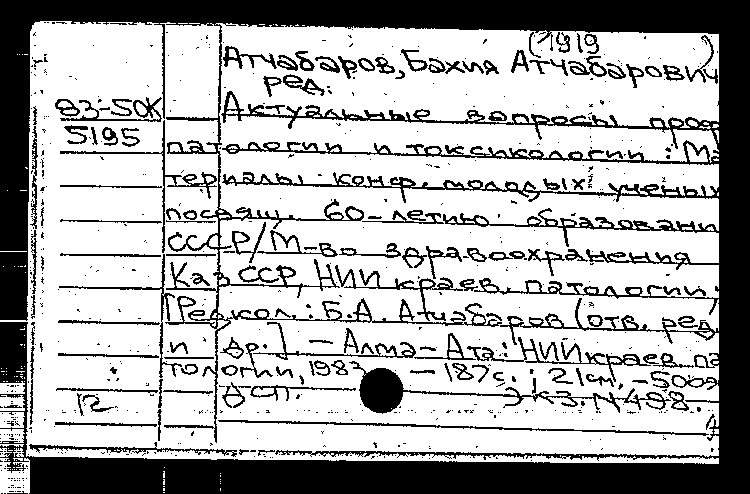 (1919 )
Атчабаров, Бахия Атчабарович
ред.
83-50К Актуальные вопросы проф
5195
патологии и токсикологии : Ма
териалы конф. молодых ученых
посвящ. 60-летию образовани
СССР/М-во здравоохранения
КазССР, НИИ краев. патологии;
[Редкол.: Б.А. Атчабаров (отв. ред.)
и др.]. — Алма-Ата: НИИ краев па
тологии, 1983 — 187с. ; 21см. -500э
12 ДСП. Экз. N498.